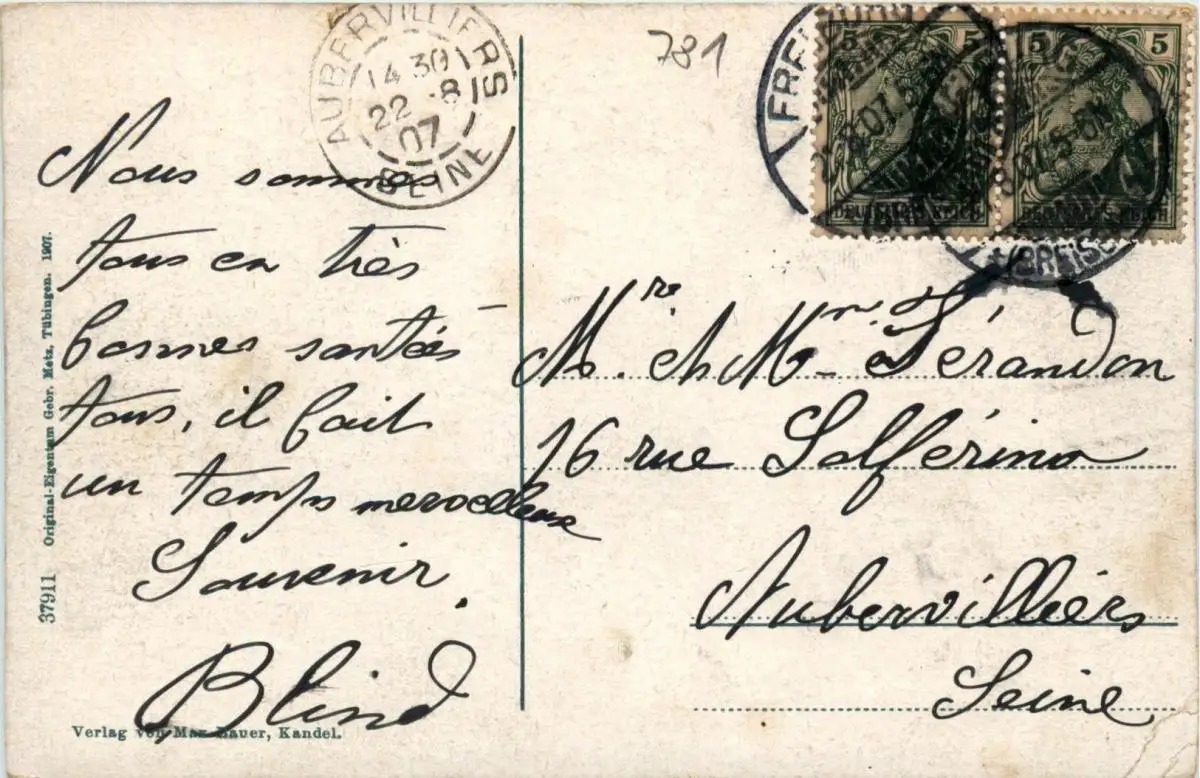 781
AUBERVILLIERS
14 30
22 -8
07
SEINE
5 5
5 5
DEUTSCHES REICH
DEUTSCHES REICH
Nous sommes
tous en très
bonnes santées
tous, il fait
un temps merveilleux
Souvenir.
Blind
Mr. et Mme Férandon
16 rue Solférino
Aubervilliers
Seine
37911 Original-Eigentum Gebr. Metz, Tübingen. 1907.
Verlag von Max Bauer, Kandel.